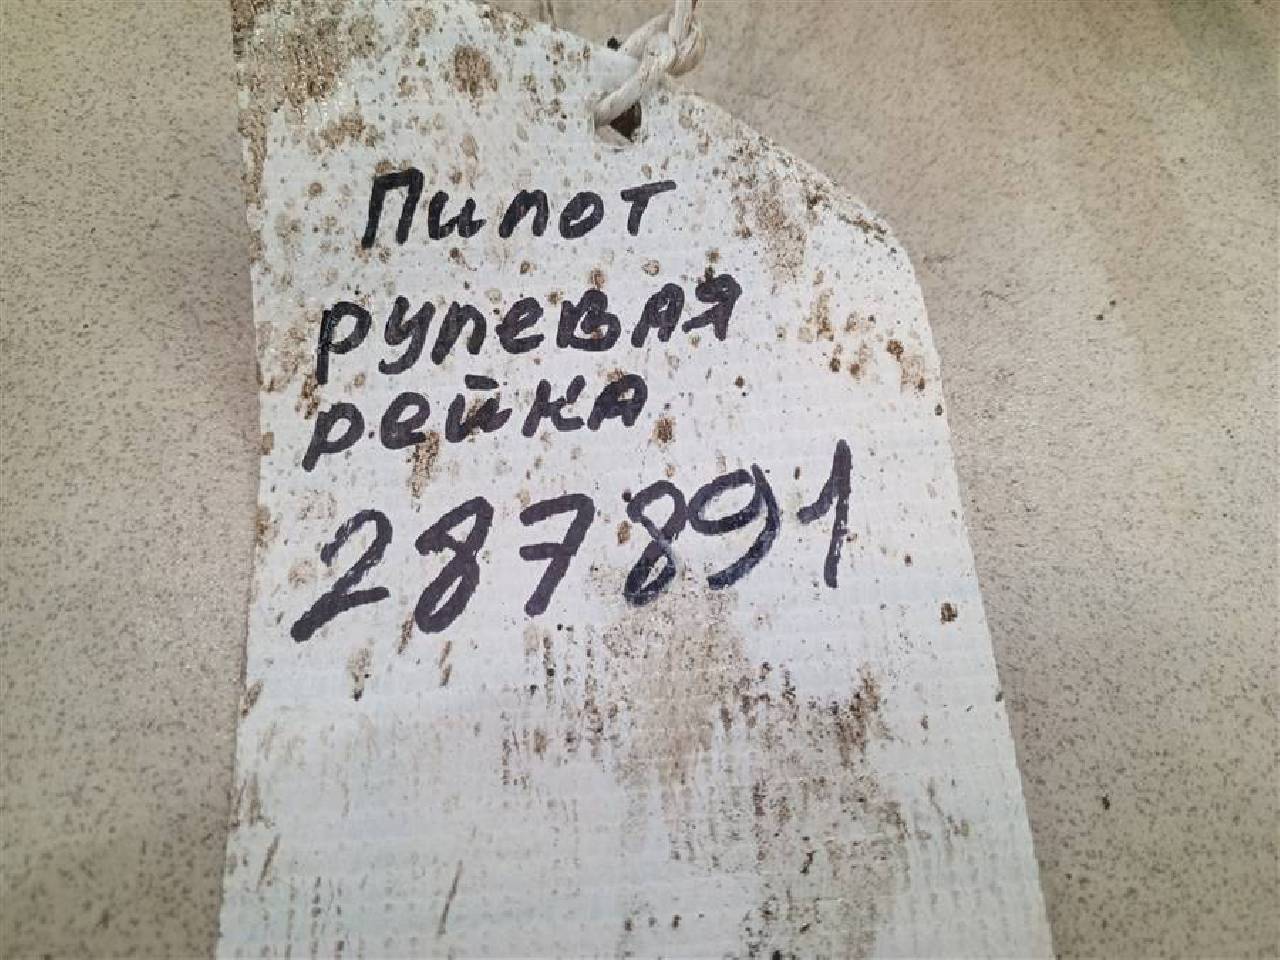 Пилот
рулевая
рейка
287891